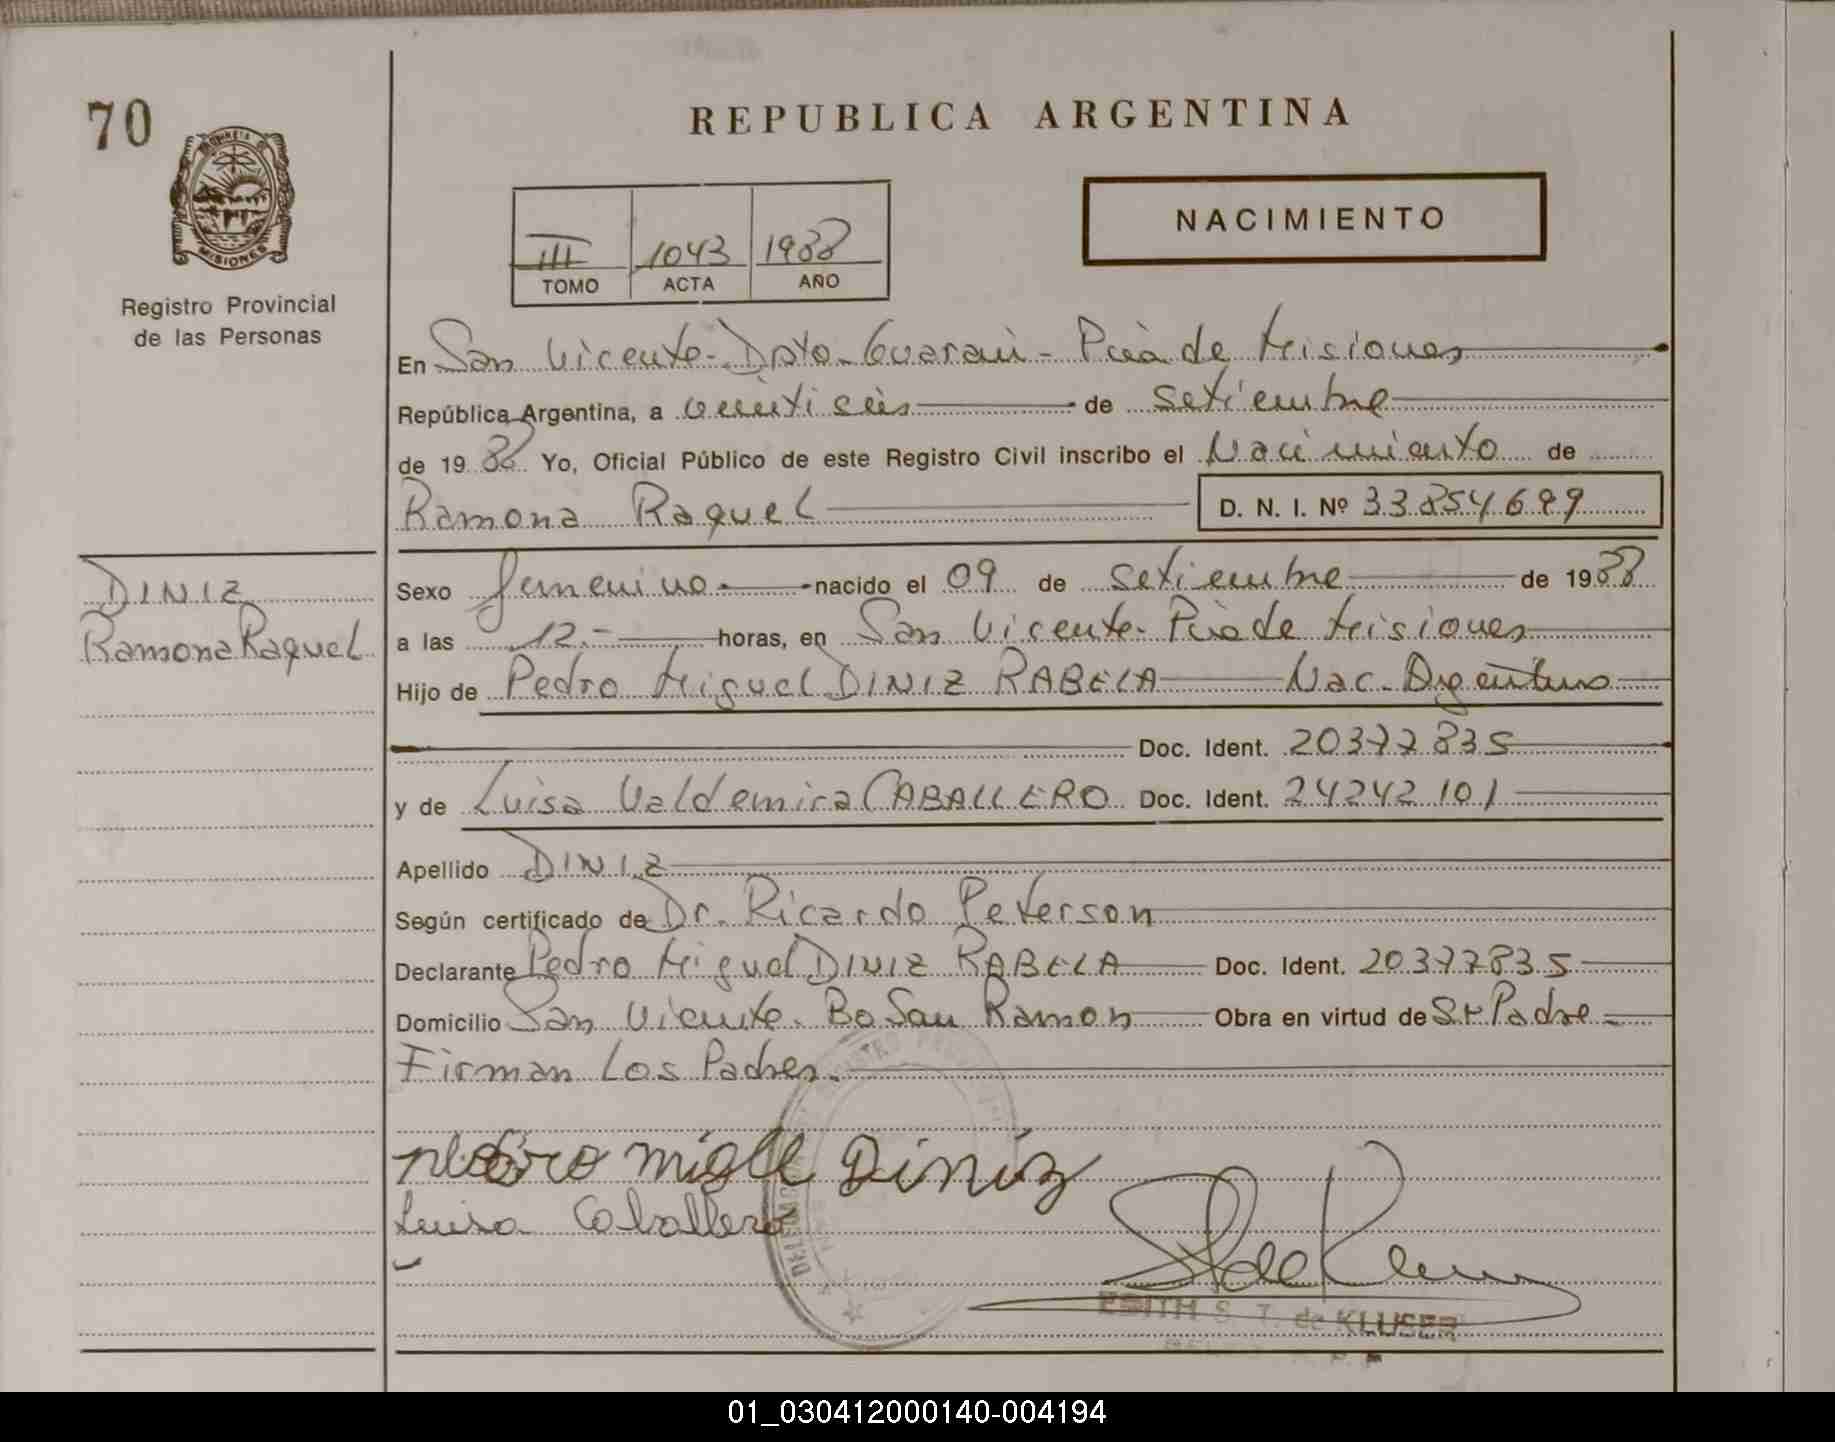 70
MISIONES
Registro Provincial
de las Personas
REPUBLICA ARGENTINA
NACIMIENTO
III 1043 1988
TOMO ACTA AÑO
En San Vicente - Dpto. Guarani - Pcia de Misiones
República Argentina, a veinti seis de setiembre
de 19 88 Yo, Oficial Público de este Registro Civil inscribo el Nacimiento de
Ramona Raquel D. N. I. Nº 33.854.699
DINIZ
Ramona Raquel
Sexo femenino nacido el 09 de setiembre de 1988
a las 12.- horas, en San Vicente - Pcia de Misiones
Hijo de Pedro Miguel DINIZ RABELA Nac. Argentino
Doc. Ident. 20377835
y de Luisa Valdemira CABALLERO Doc. Ident. 24242101
Apellido DINIZ
Según certificado de Dr. Ricardo Peterson
Declarante Pedro Miguel DINIZ RABELA Doc. Ident. 20377835
Domicilio San Vicente. Bo San Ramon Obra en virtud de Padre
Firman Los Padres.
Diniz
Luisa Caballero
EDITH S. T. de KLUSER
01_030412000140-004194